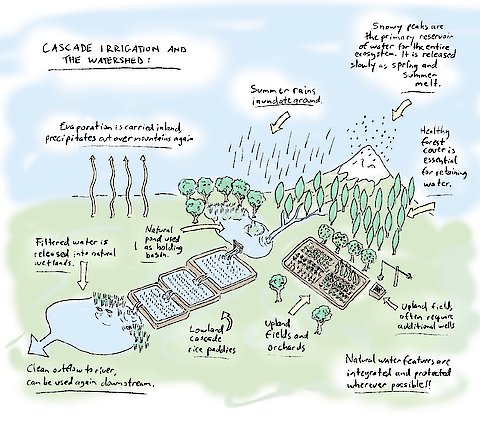 CASCADE IRRIGATION AND
THE WATERSHED:
Snowy peaks are
the primary reservoir
of water for the entire
ecosystem. It is released
slowly as spring and
summer
melt.
Summer rains
inundate ground.
Evaporation is carried inland,
precipitates out over mountains again
Healthy
forest
cover is
essential
for retaining
water.
Natural
pond used
as holding
basin.
Filtered water is
released into natural
wetlands.
Lowland
cascade
rice paddies
Upland
fields and
orchards
Upland fields
often require
additional wells
Clean outflow to river,
can be used again downstream.
Natural water features are
integrated and protected
wherever possible!!